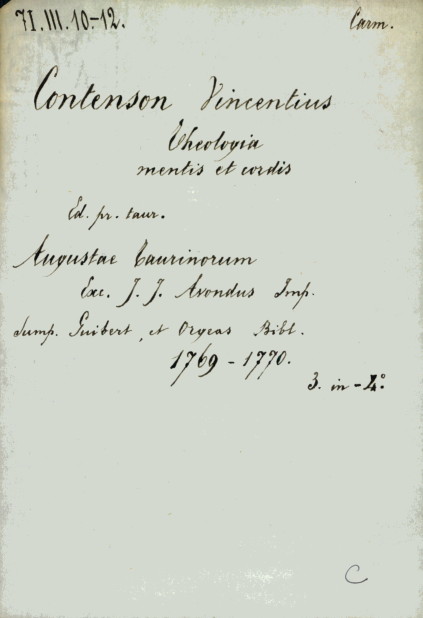 71.III.10-12. Carm.
Contenson Vincentius
Theologia
mentis et cordis
Ed. pr. taur.
Augustae Taurinorum
Exc. J. J. Avondus Imp.
Sump. Guibert, et Orgeas Bibl.
1769 - 1770.
3. in - 4.°
C